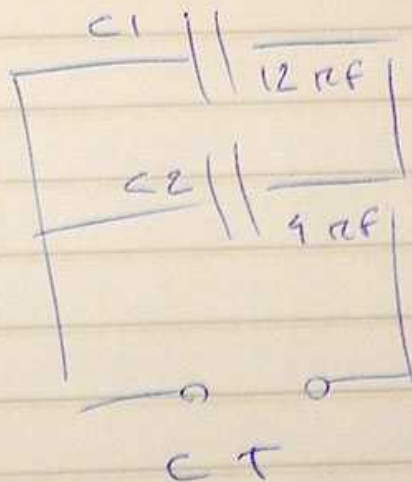 C1
12 nf
C2
9 nf
CT